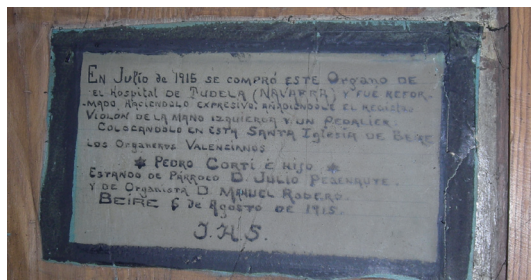 En Julio de 1915 se compró este Organo de
el Hospital de Tudela (Navarra) y fué refor-
mado, haciendolo expresivo, añadiendole el registro
Violon de la mano izquierda y un Pedalier.
Colocandolo en esta Santa Iglesia de Beire
los Organeros Valencianos
* Pedro Cortí é hijo *
Estando de Párroco D. Julio Pedenaute.
y de Organista D. Manuel Rodero.
Beire 6 de Agosto de 1915.
J.H.S.